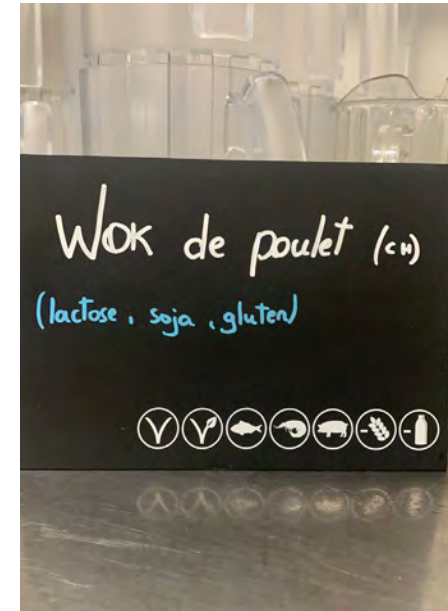 Wok de poulet (CH)
(lactose, soja, gluten)